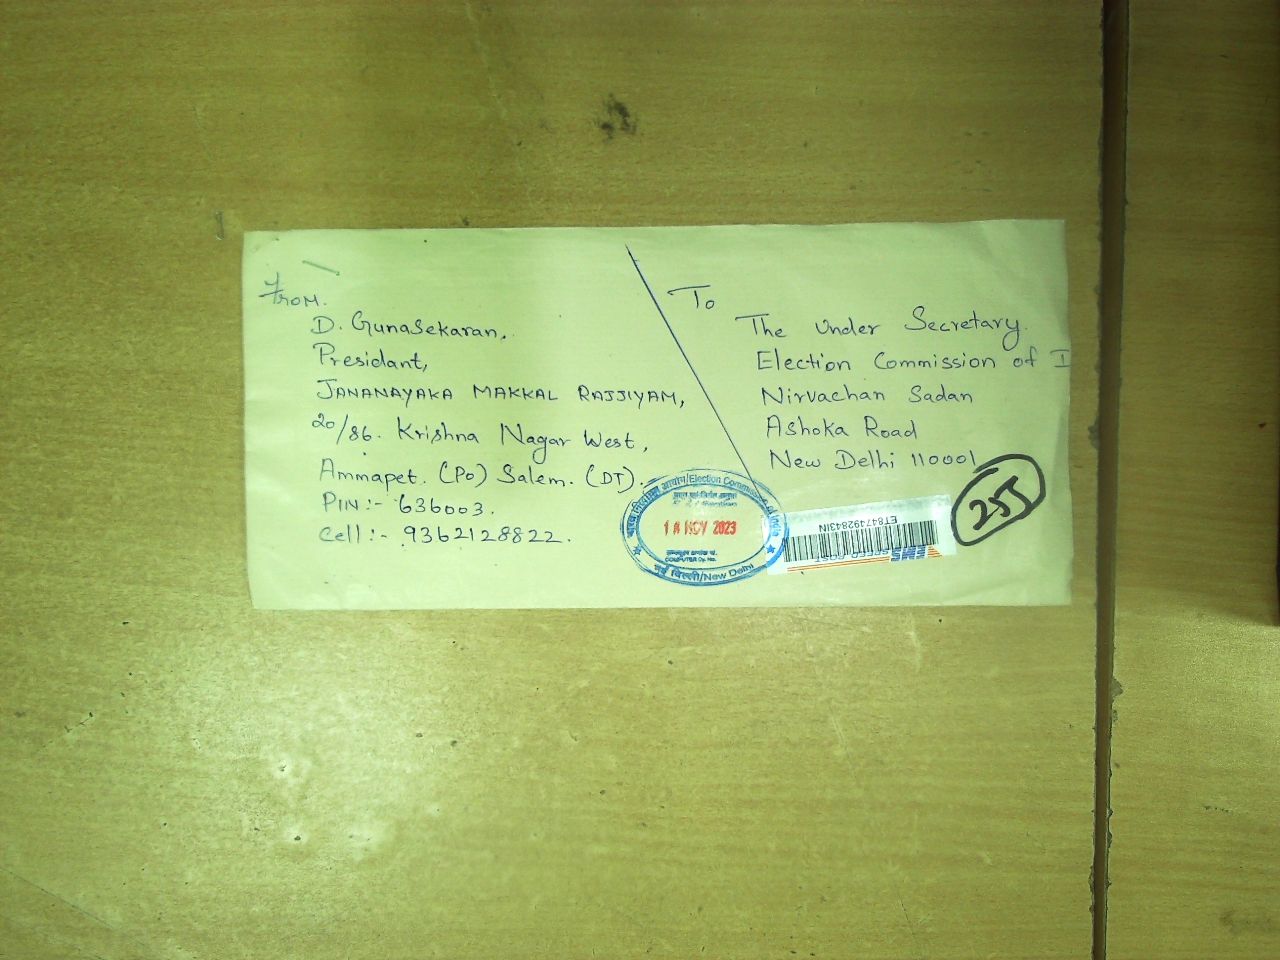 From.
D. Gunasekaran,
Presidant,
JANANAYAKA MAKKAL RAJJIYAM,
20/86. Krishna Nagar West,
Ammapet. (Po) Salem. (DT).
PIN :- 636003.
Cell :- 9362128822.
To
The Under Secretary
Election Commission of I
Nirvachan Sadan
Ashoka Road
New Delhi 110001
भारत निर्वाचन आयोग/Election Commission of India
NOV 2023
COMPUTER Dy. No.
नई दिल्ली/New Delhi
ET847492843IN
EMS SPEED POST